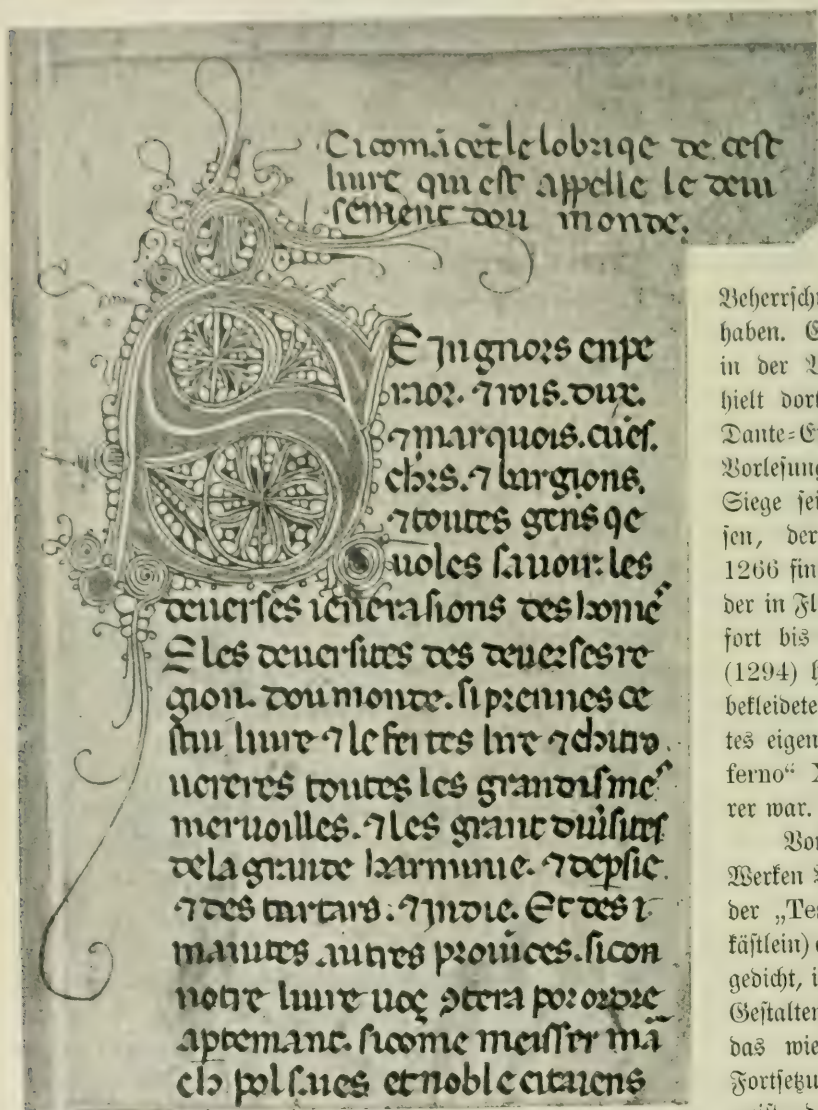 Ci comācēt le lobriqe de cest
liure qui est appelle le deui
sement dou monde.
SEingnors enpe
raor. ⁊ rois. dux.
⁊ marquois. cuēs.
chrs. ⁊ bargions.
⁊ toutes gens qe
uoles sauoir les
deuerses ienerasions des home͛
E les deuersites des deuerses re
gion. dou monde. si prennes ce
stui liure ⁊ le feites lire ⁊ chi tro
uereres toutes les grandisme͛
meruoilles. ⁊ les grant diuisites
de la grande harminie. ⁊ de psie
⁊ des tartars. ⁊ indie. Et des
maintes autres prouices. si con
notre liure uoç ɔtera por ordre
aptemant. si come meisser mā
ch pol saies et noble citaiens
Beherrsch
haben.
in der
hielt dor
Dante=E
Vorlesung
Siege sei
sen, der
1266 fin
der in Fl
fort bis
(1294)
bekleidete
tes eigen
ferno“
rer war.
Vor
Werken
der „Tes
kästlein)
gedicht, i
Gestalten
das wie
Fortsetzu